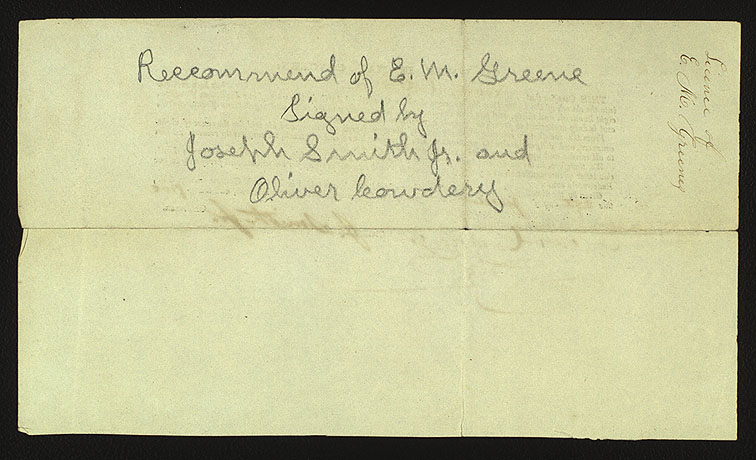 Reccommend of E. M. Greene
Signed by
Joseph Smith Jr. and
Oliver Cowdery
Licence of
E. M. Greene